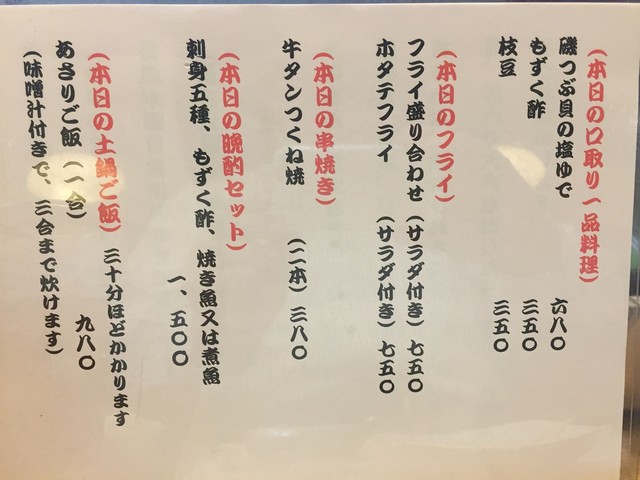 (本日の口取り一品料理)
磯つぶ貝の塩ゆで 六八〇
もずく酢 三五〇
枝豆 三五〇
(本日のフライ)
フライ盛り合わせ(サラダ付き)七五〇
ホタテフライ (サラダ付き)七五〇
(本日の串焼き)
牛タンつくね焼 (二本)三八〇
(本日の晩酌セット)
刺身五種、もずく酢、焼き魚又は煮魚
一、五〇〇
(本日の土鍋ご飯)三十分ほどかかります
あさりご飯(一合) 九八〇
(味噌汁付きで、三合まで炊けます)